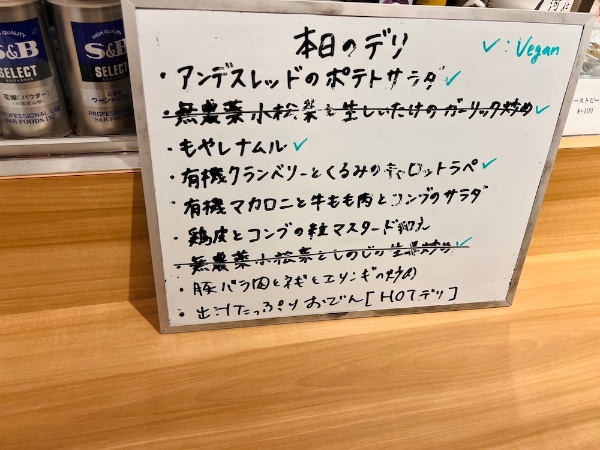 本日のデリ
✓: Vegan
・アンデスレッドのポテトサラダ ✓
・無農薬小松菜と生しいたけのガーリック炒め ✓
・もやしナムル ✓
・有機クランベリーとくるみのキャロットラペ ✓
・有機マカロニと牛もも肉とコンブのサラダ
・鶏皮とコンブの粒マスタード和え
・無農薬小松菜としめじの生姜炒め ✓
・豚バラ肉とネギとエリンギの炒め
・出汁たっぷりおでん[HOTデリ]
HIGH QUALITY
S&B
SELECT
花椒(パウダー)
PROFESSIONAL USE
S&B FOODS INC.
HIGH QUALITY
S&B
SELECT
PROFESSIONAL
S&B FOODS
¥400